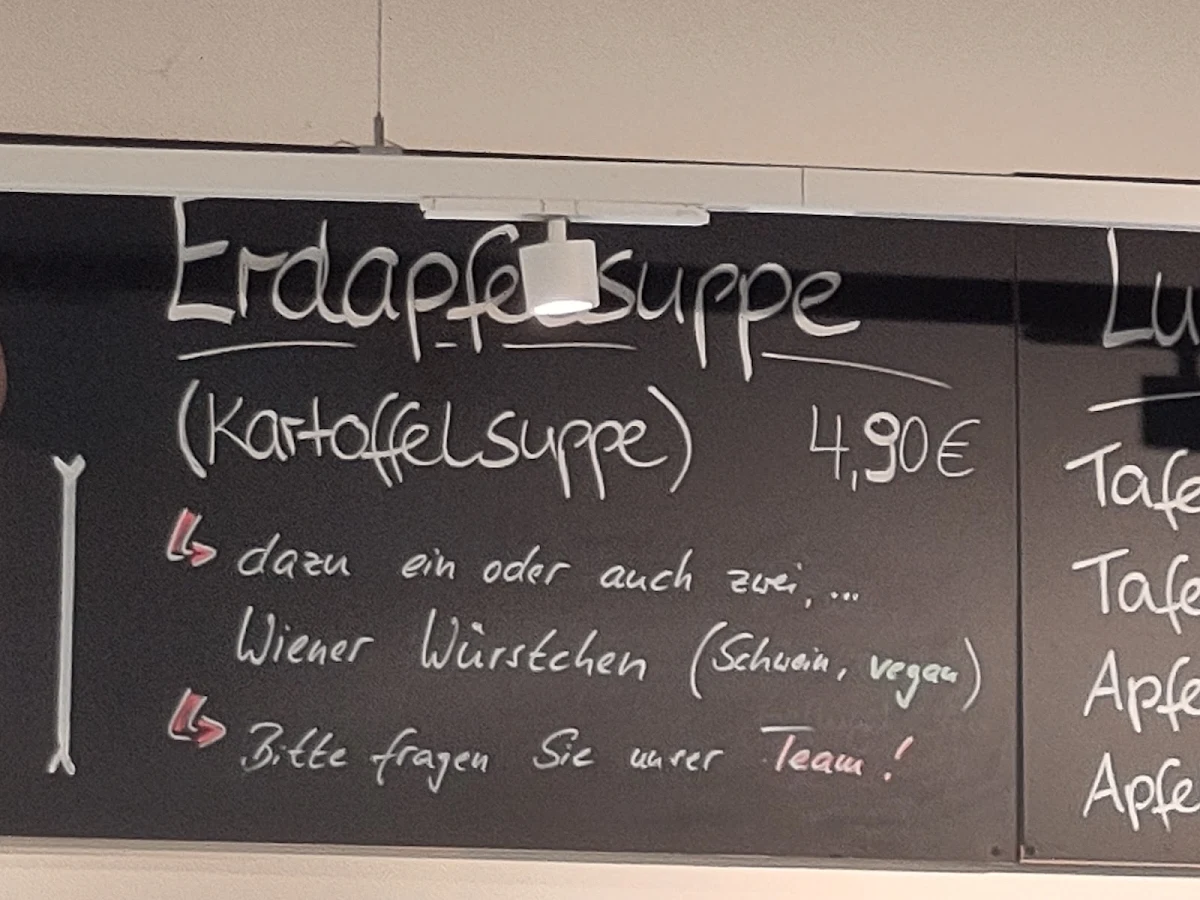 Erdapfelsuppe
(Kartoffelsuppe) 4,90€
dazu ein oder auch zwei, ...
Wiener Würstchen (Schwein, vegan)
Bitte fragen Sie unser Team!
Lu
Tafe
Tafe
Apfe
Apfe